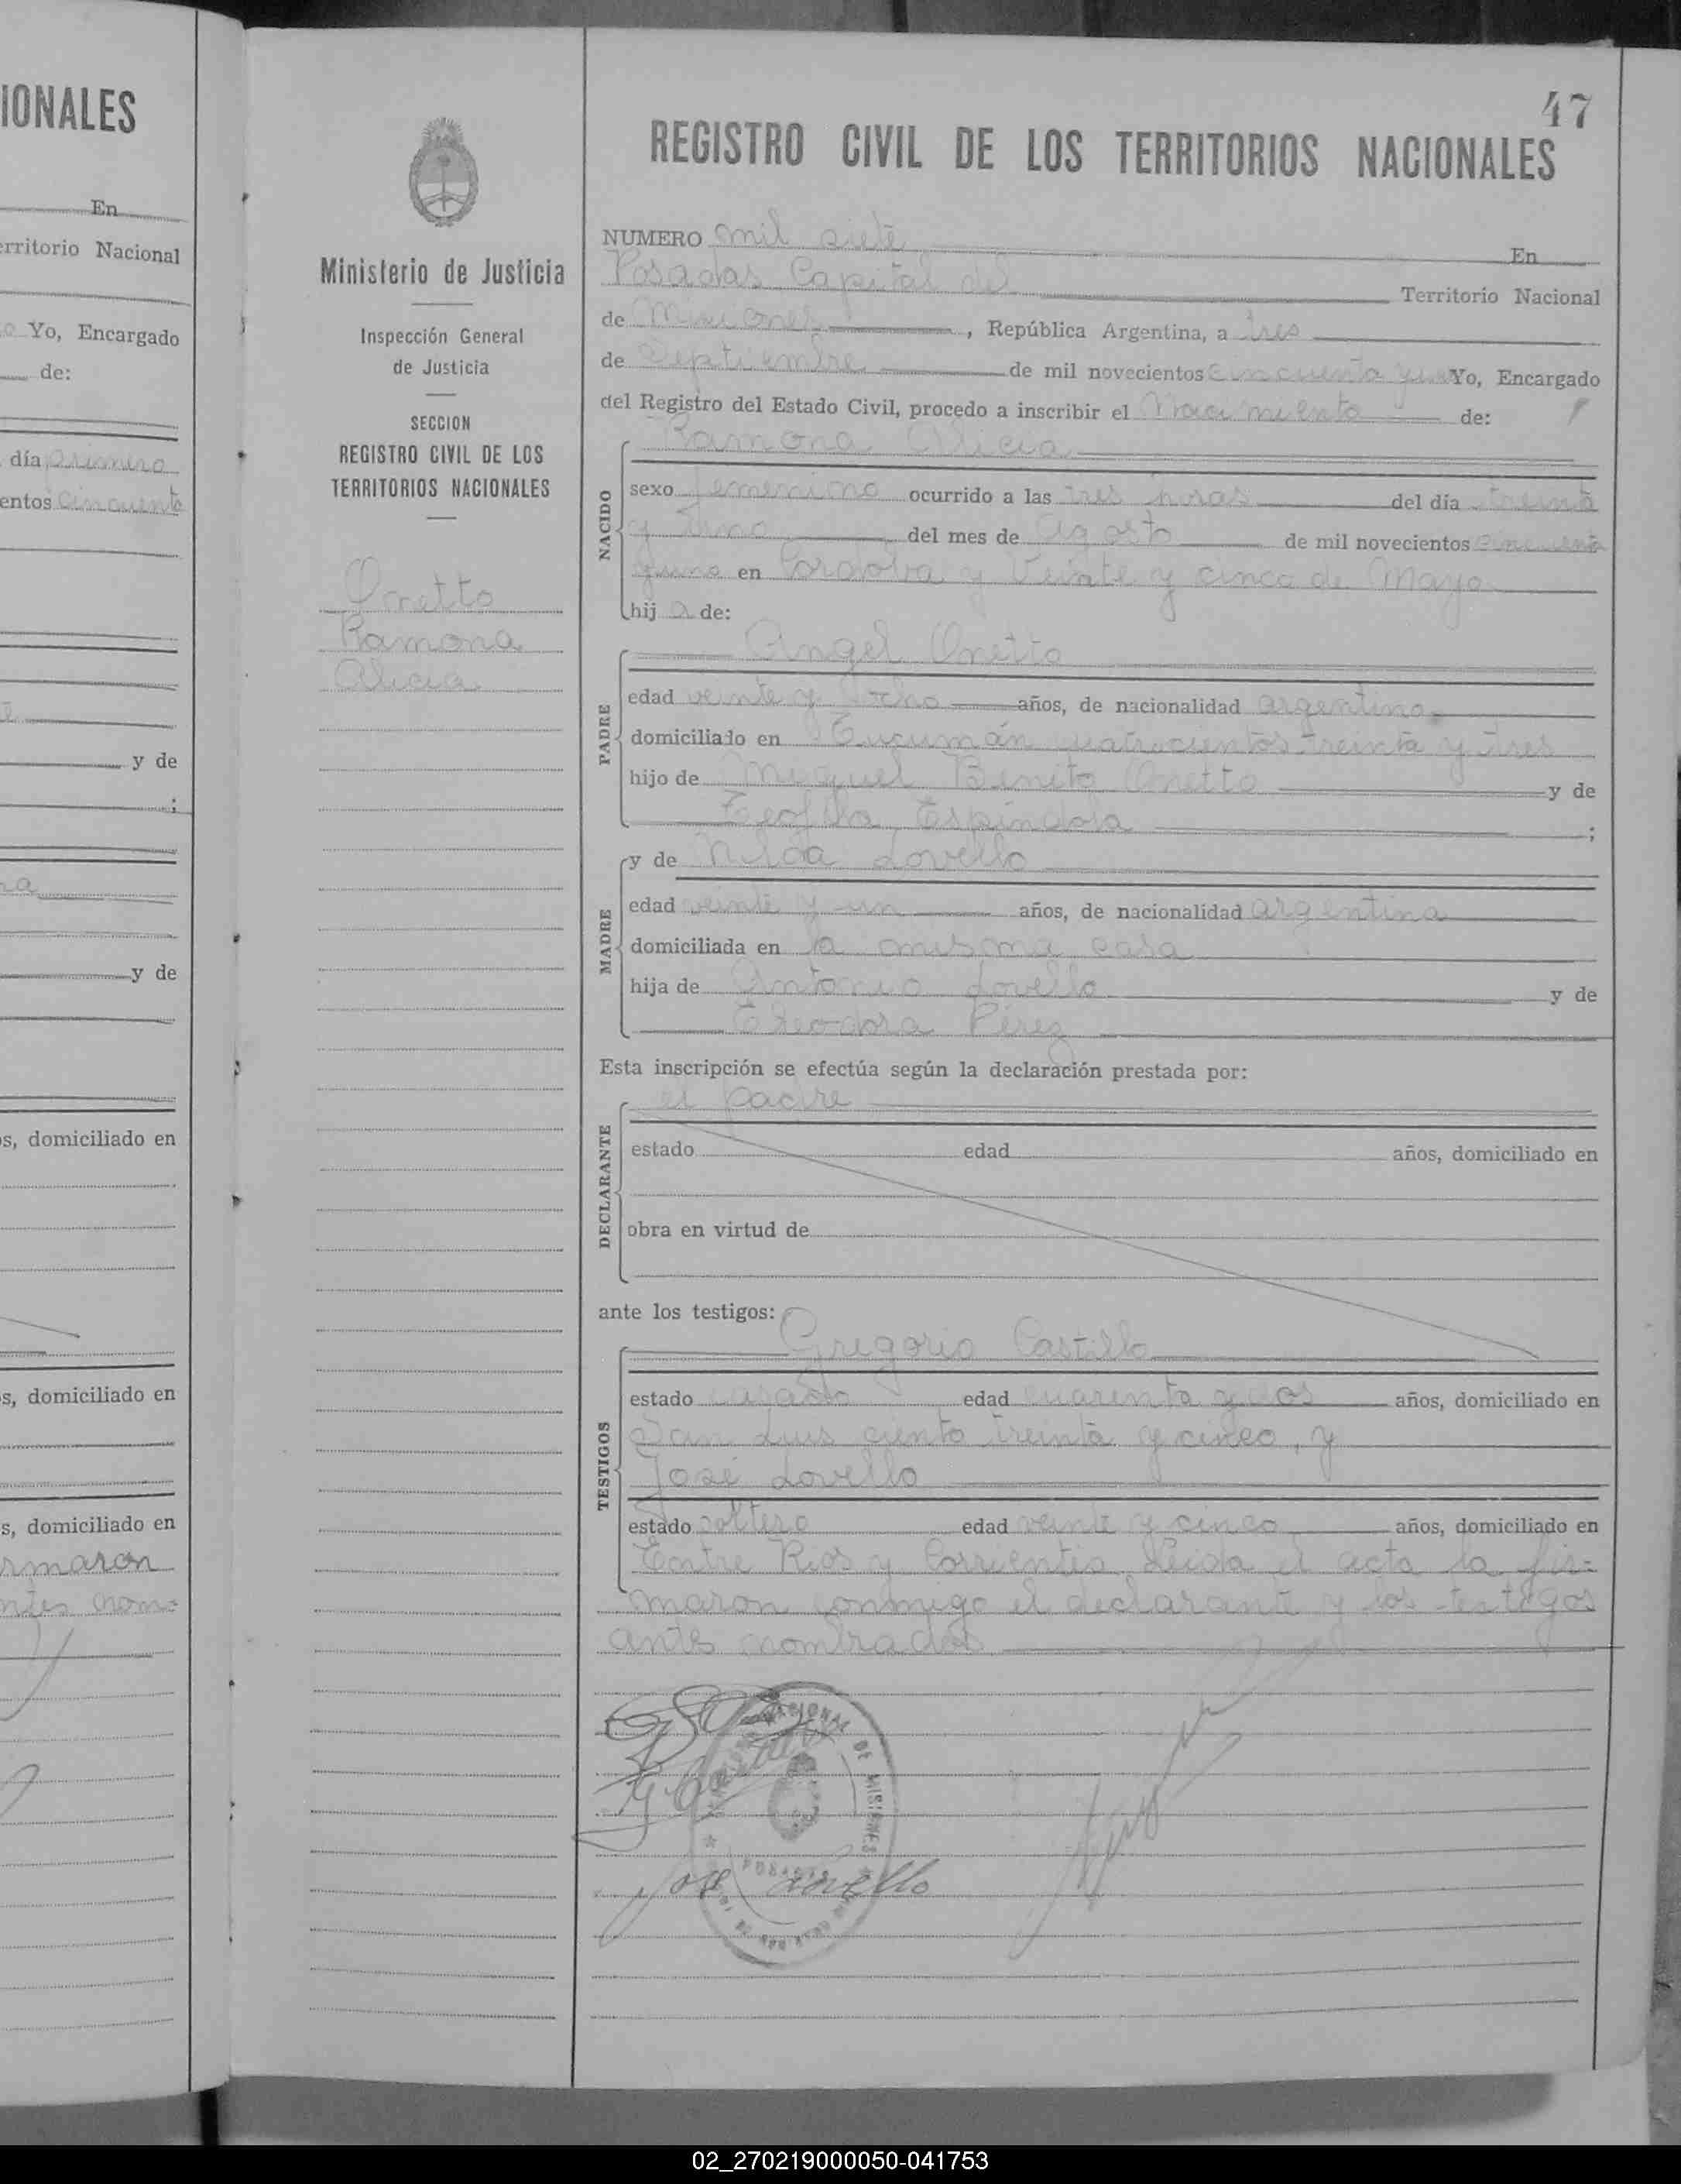 IONALES
En
erritorio Nacional
Yo, Encargado
de:
día primero
entos cincuenta
y de
;
na
y de
s, domiciliado en
s, domiciliado en
s, domiciliado en
rmaron
ntes nom=
Ministerio de Justicia
Inspección General
de Justicia
SECCION
REGISTRO CIVIL DE LOS
TERRITORIOS NACIONALES
Onetto
Ramona
Alicia
47
REGISTRO CIVIL DE LOS TERRITORIOS NACIONALES
NUMERO mil siete En
Posadas Capital del Territorio Nacional
de Misiones, República Argentina, a tres
de Septiembre de mil novecientos cincuenta y uno Yo, Encargado
del Registro del Estado Civil, procedo a inscribir el Nacimiento de:
Ramona Alicia
NACIDO
sexo femenino ocurrido a las tres horas del día treinta
y uno del mes de Agosto de mil novecientos cincuenta
y uno en Córdoba y Veinte y cinco de Mayo
hij a de:
Angel Onetto
PADRE
edad veinte y ocho años, de nacionalidad argentino
domiciliado en Tucumán cuatrocientos treinta y tres
hijo de Miguel Benito Onetto y de
Teofila Espíndola ;
y de Nilda Lovello
MADRE
edad veinte y un años, de nacionalidad argentina
domiciliada en la misma casa
hija de Antonio Lovello y de
Eteodora Pérez
Esta inscripción se efectúa según la declaración prestada por:
el padre
DECLARANTE
estado edad años, domiciliado en
obra en virtud de
ante los testigos:
Gregorio Castillo
TESTIGOS
estado casado edad cuarenta y dos años, domiciliado en
San Luis ciento treinta y cinco, y
José Lovello
estado soltero edad veinte y cinco años, domiciliado en
Entre Rios y Corrientes. Leida el acta la fir=
maron conmigo el declarante y los testigos
antes nombrados
NACIONAL DE MISIONES
POSADAS
José Lovello
02_270219000050-041753